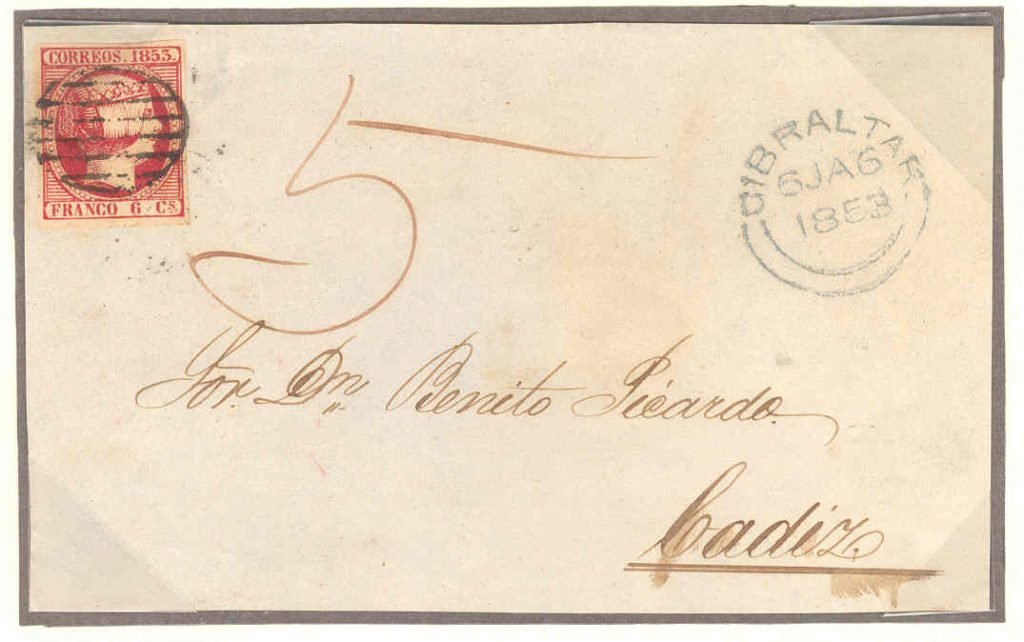 CORREOS. 1853.
FRANCO 6 Cs.
5
GIBRALTAR
6JA6
1853
Sor. Dn. Benito Picardo
Cadiz